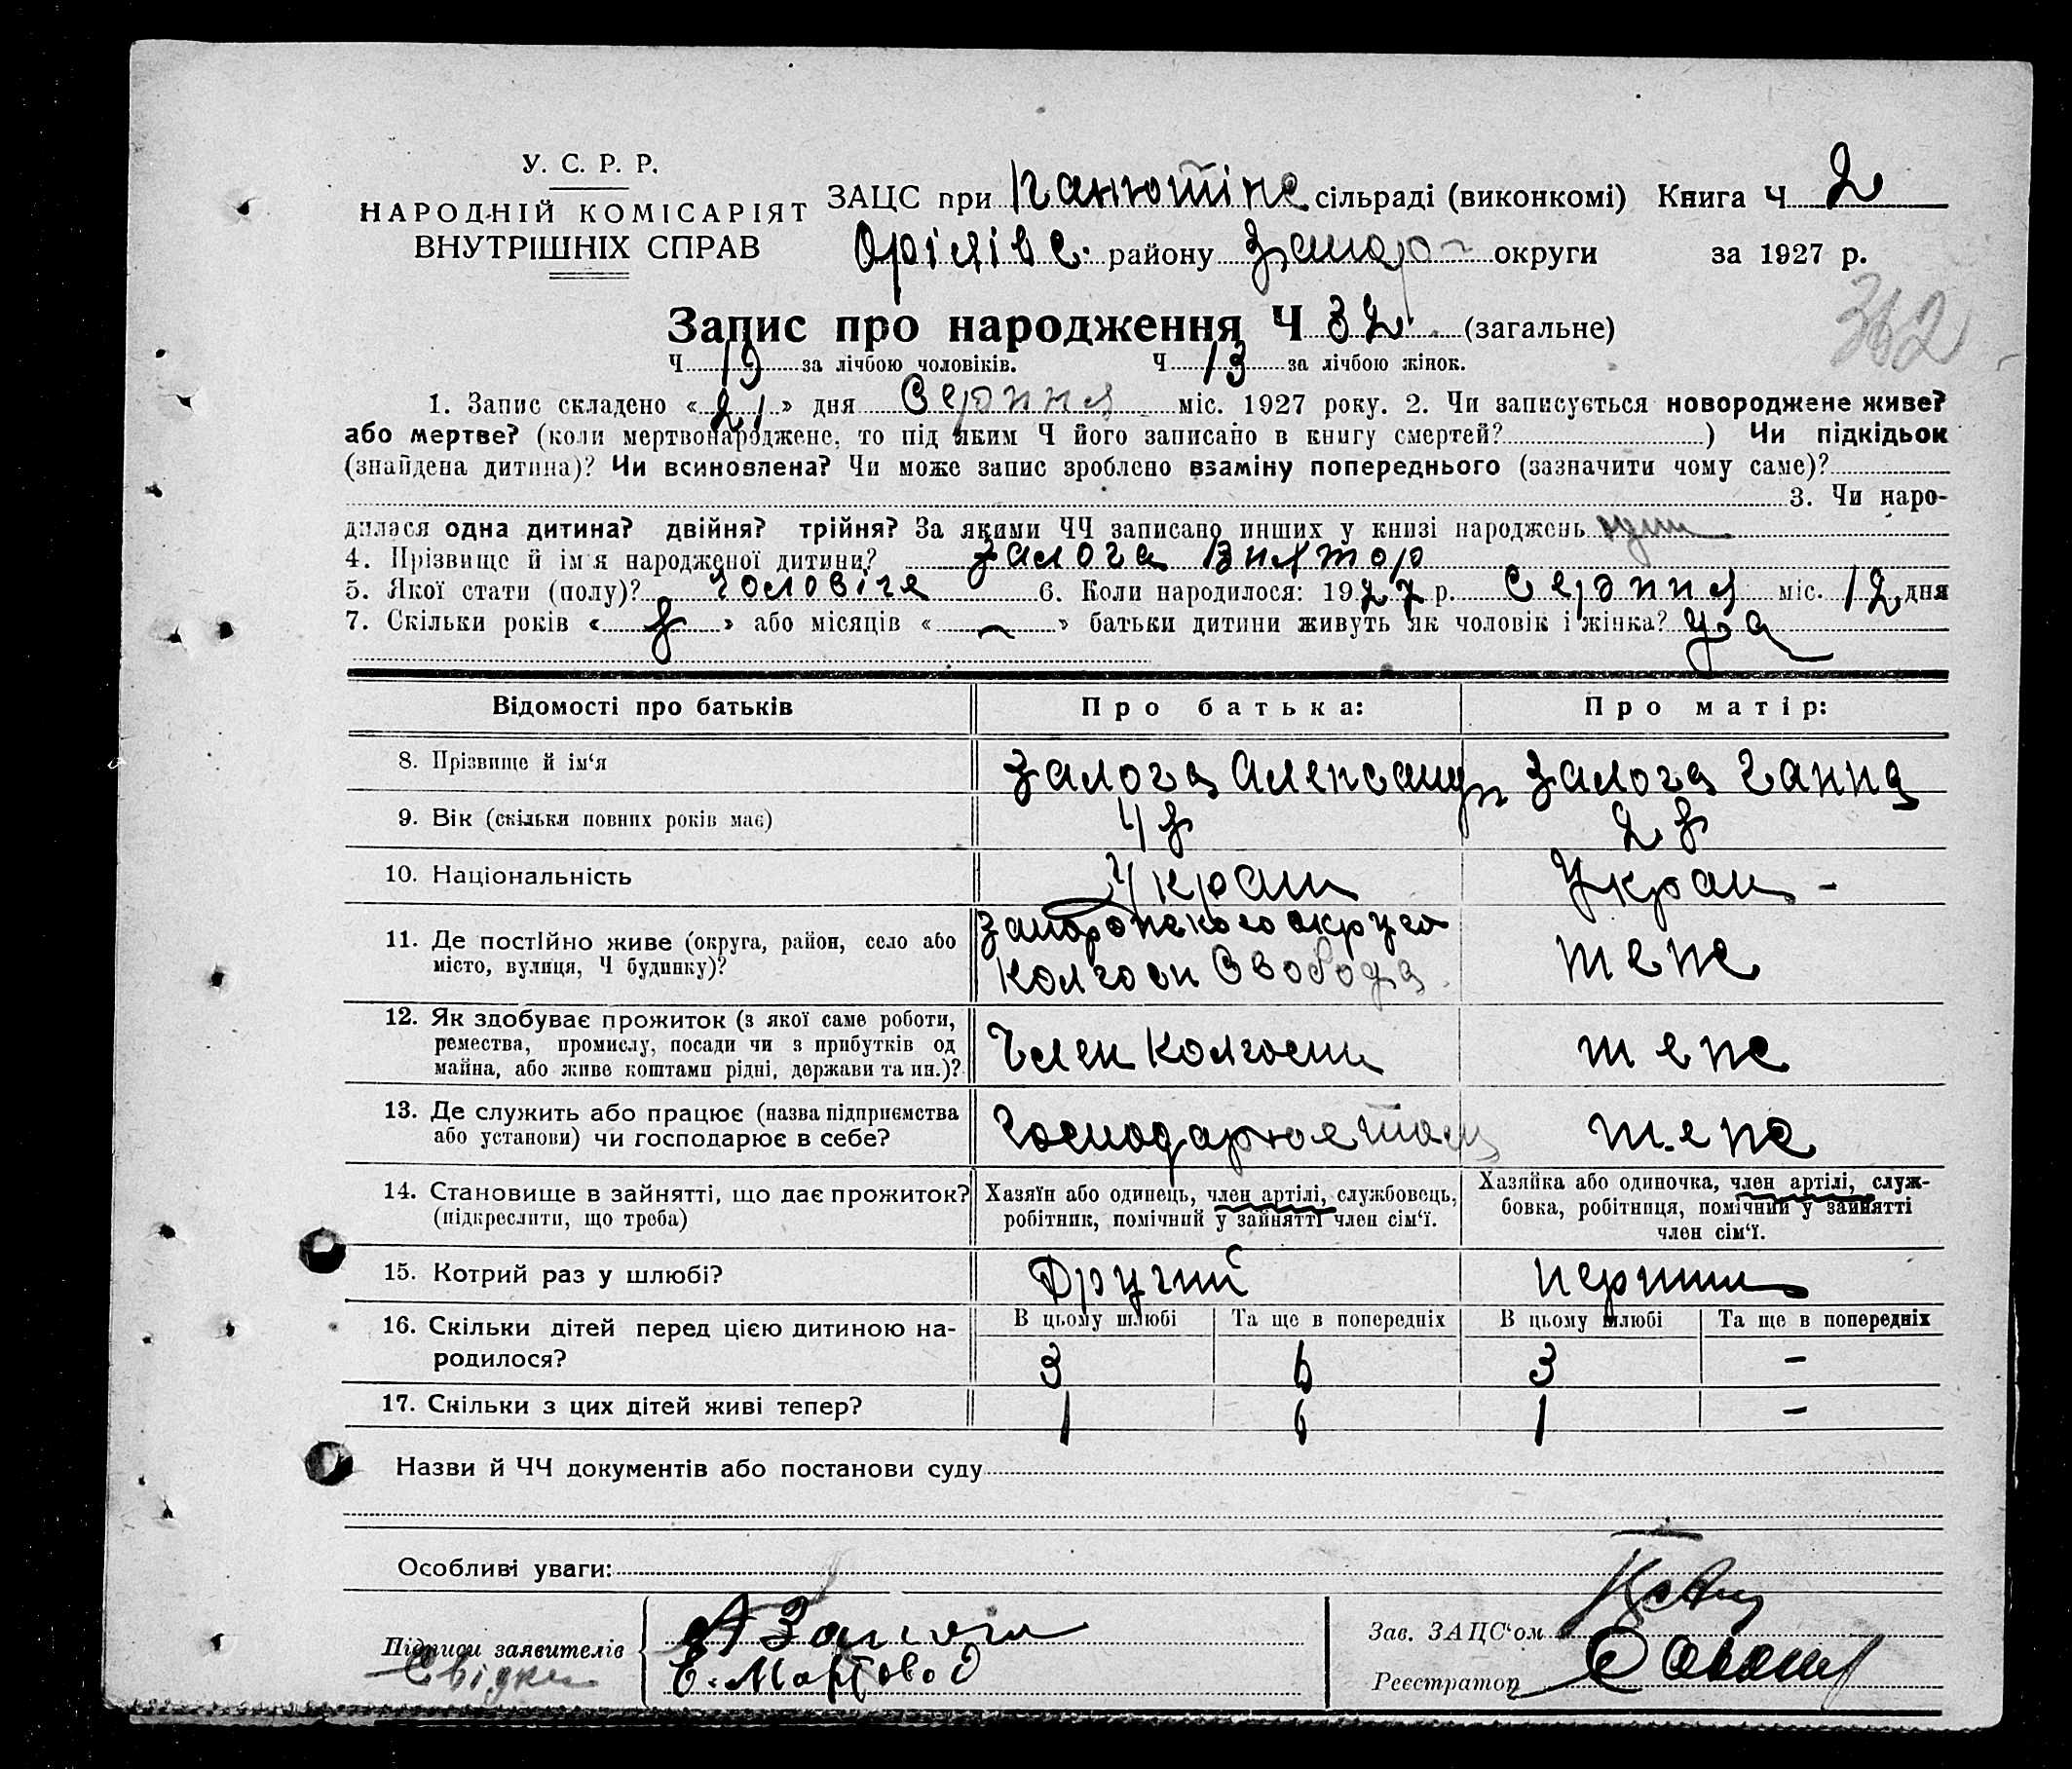 У. С. Р. Р.
НАРОДНІЙ КОМІСАРІЯТ
ВНУТРІШНІХ СПРАВ
ЗАЦС при сільраді (виконкомі) Книга Ч 2
Оріхівс. району Запор округи за 1927 р.
362
Запис про народження Ч 32 (загальне)
Ч 19 за лічбою чоловіків. Ч 13 за лічбою жінок.
1. Запис складено «21» дня Серпня міс. 1927 року. 2. Чи записується новороджене живе?
або мертве? (коли мертвонароджене, то під яким Ч його записано в книгу смертей? ) Чи підкідьок
(знайдена дитина)? Чи всиновлена? Чи може запис зроблено взаміну попереднього (зазначити чому саме)?
3. Чи наро-
дилася одна дитина? двійня? трійня? За якими ЧЧ записано инших у книзі народжень
4. Прізвище й ім'я народженої дитини? Залога Виктор
5. Якої стати (полу)? чоловіче 6. Коли народилося: 1927 р. Серпня міс. 12 дня
7. Скільки років « 8 » або місяців « — » батьки дитини живуть як чоловік і жінка? да
Відомості про батьків Про батька: Про матір:
8. Прізвище й ім'я Залога Александр Залога Ганна
9. Вік (скільки повних років має) 48 28
10. Національність Украин Украин -
11. Де постійно живе (округа, район, село або
місто, вулиця, Ч будинку)? Колгосп Свобода теже
12. Як здобуває прожиток (з якої саме роботи,
ремества, промислу, посади чи з прибутків од
майна, або живе коштами рідні, держави та ин.)? Член Колгоспи теже
13. Де служить або працює (назва підприємства
або установи) чи господарює в себе? Господарюе теже
14. Становище в зайнятті, що дає прожиток?
(підкреслити, що треба)
Хазяїн або одинець, член артілі, службовець,
робітник, помічний у зайнятті член сім'ї.
Хазяйка або одиночка, член артілі, служ-
бовка, робітниця, помічний у зайнятті
член сім'ї.
15. Котрий раз у шлюбі? Другий перший
16. Скільки дітей перед цією дитиною на-
родилося?
В цьому шлюбі Та ще в попередніх В цьому шлюбі Та ще в попередніх
3 6 3 —
17. Скільки з цих дітей живі тепер? 1 6 1 —
Назви й ЧЧ документів або постанови суду
Особливі уваги:
Підписи заявителів А Залога
Свідки Е. Мартовод
Зав. ЗАЦС'ом
Реєстратор